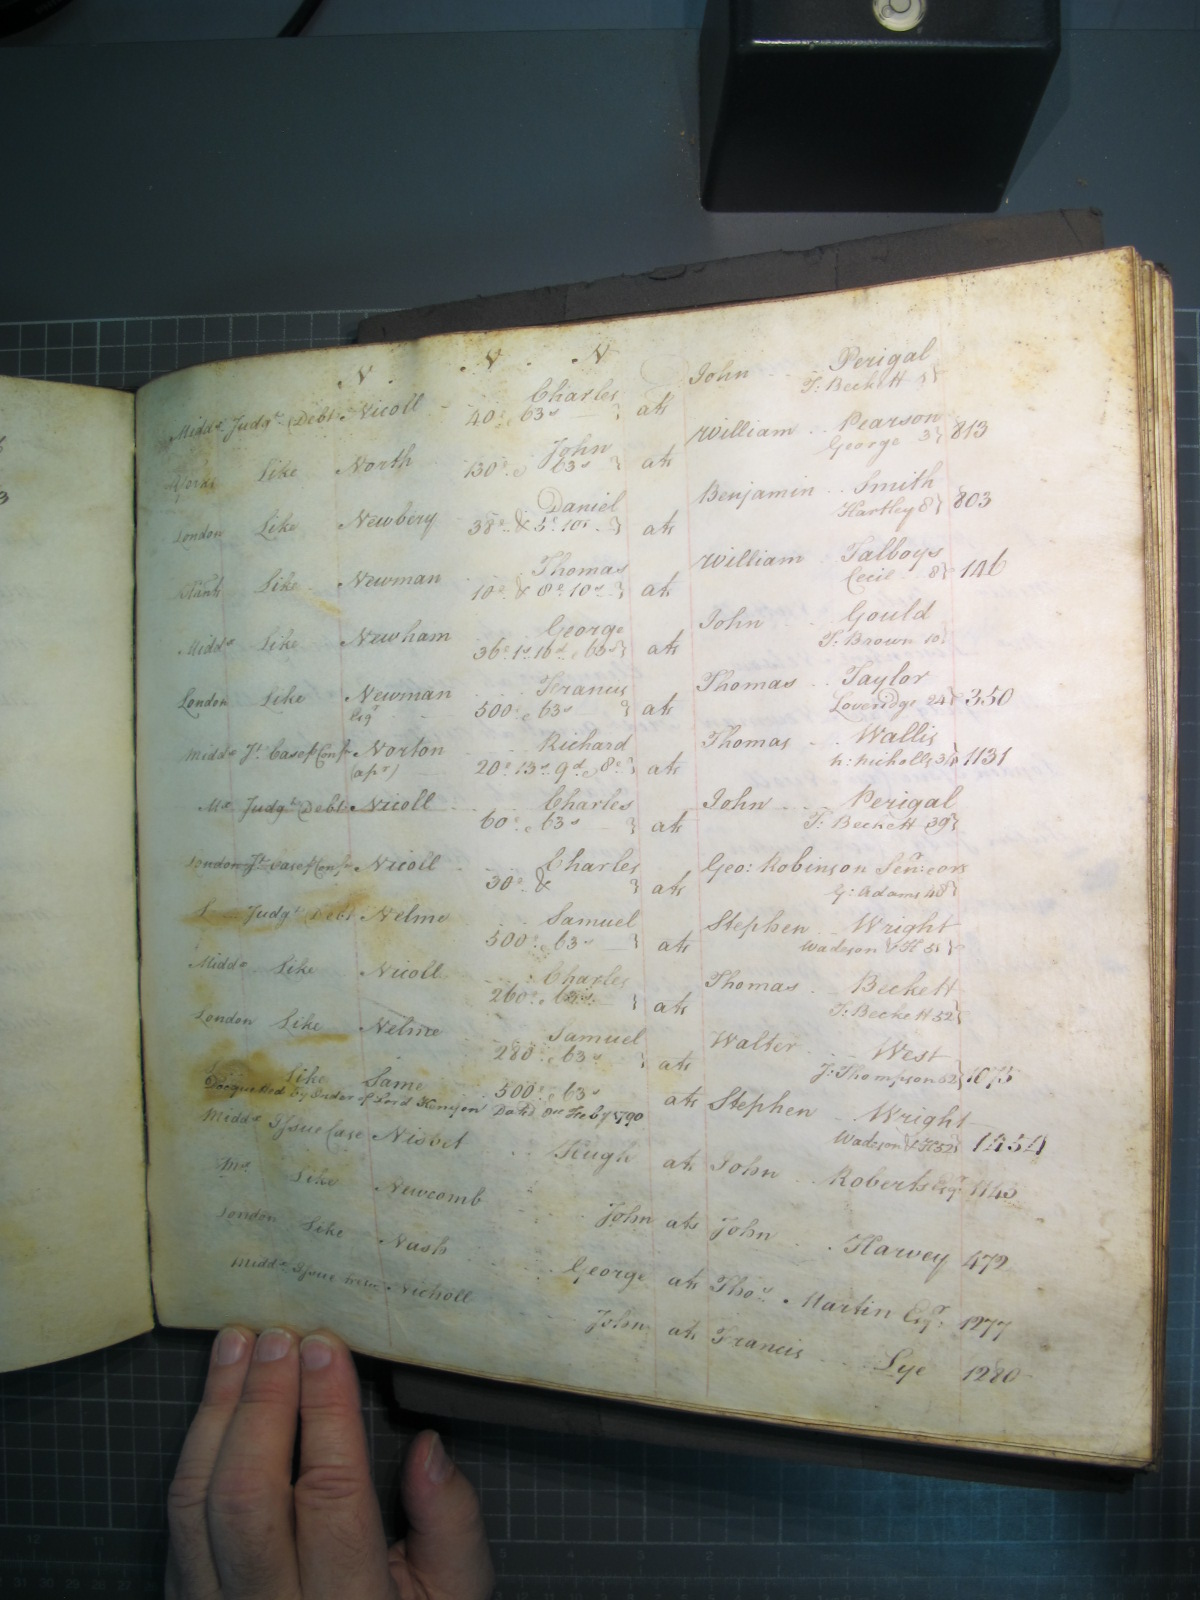 N . N . N
Midd.x Judg.t Debt Nicoll Charles 40.£ & 63.s } at John Perigal T: Beckett 1}
Yorks Like North John 130.£ & 63.s } at William Pearson George 3} 813
London Like Newbery Daniel 38.£ & 5.£ 10.s } at Benjamin Smith Hartley 8} 803
Like Newman Thomas 10.£ & 8.£ 10.s } at William Talboys Cecil 8} 146
Midd.x Like Newham George 36.£ 1.s & 63.s } at John Gould T: Brown 10}
London Like Newman Esq.r Francis 500.£ & 63.s } at Thomas Taylor Loveridge 24} 350
Midd.x J.t Case Norton Richard 20.£ 13.s 9.d & 8.£ } at Thomas Wallis N: Nicholls 1131
M.x Judg.t Debt Nicoll Charles 60.£ & 63.s } at John Perigal T: Beckett 39}
London J.t Case Nicoll Charles 30.£ & } at Geo: Robinson Sen.r G: Adams 48}
L Judg.t Debt Nelme Samuel 500.£ & 63.s } at Stephen Wright Wadeson & H 51}
Midd.x Like Nicoll Charles 260.£ & 63.s } at Thomas Beckett T: Beckett 52}
London Like Nelme Samuel 280.£ & 63.s } at Walter West J: Thompson 52} 1075
Like Same 500.£ & 63.s at Stephen Wright Wadeson & H 52} 1454
Docquetted by Order of Lord Kenyon Dated Feb.y 1790
Midd.x Issue Case Nisbet Hugh at John Roberts Esq.r
M.x Like Newcomb John at John Harvey 472
London Like Nash George at Tho.s Martin Esq.r 1277
Midd.x Issue Nicholl John at Francis Lye 1280